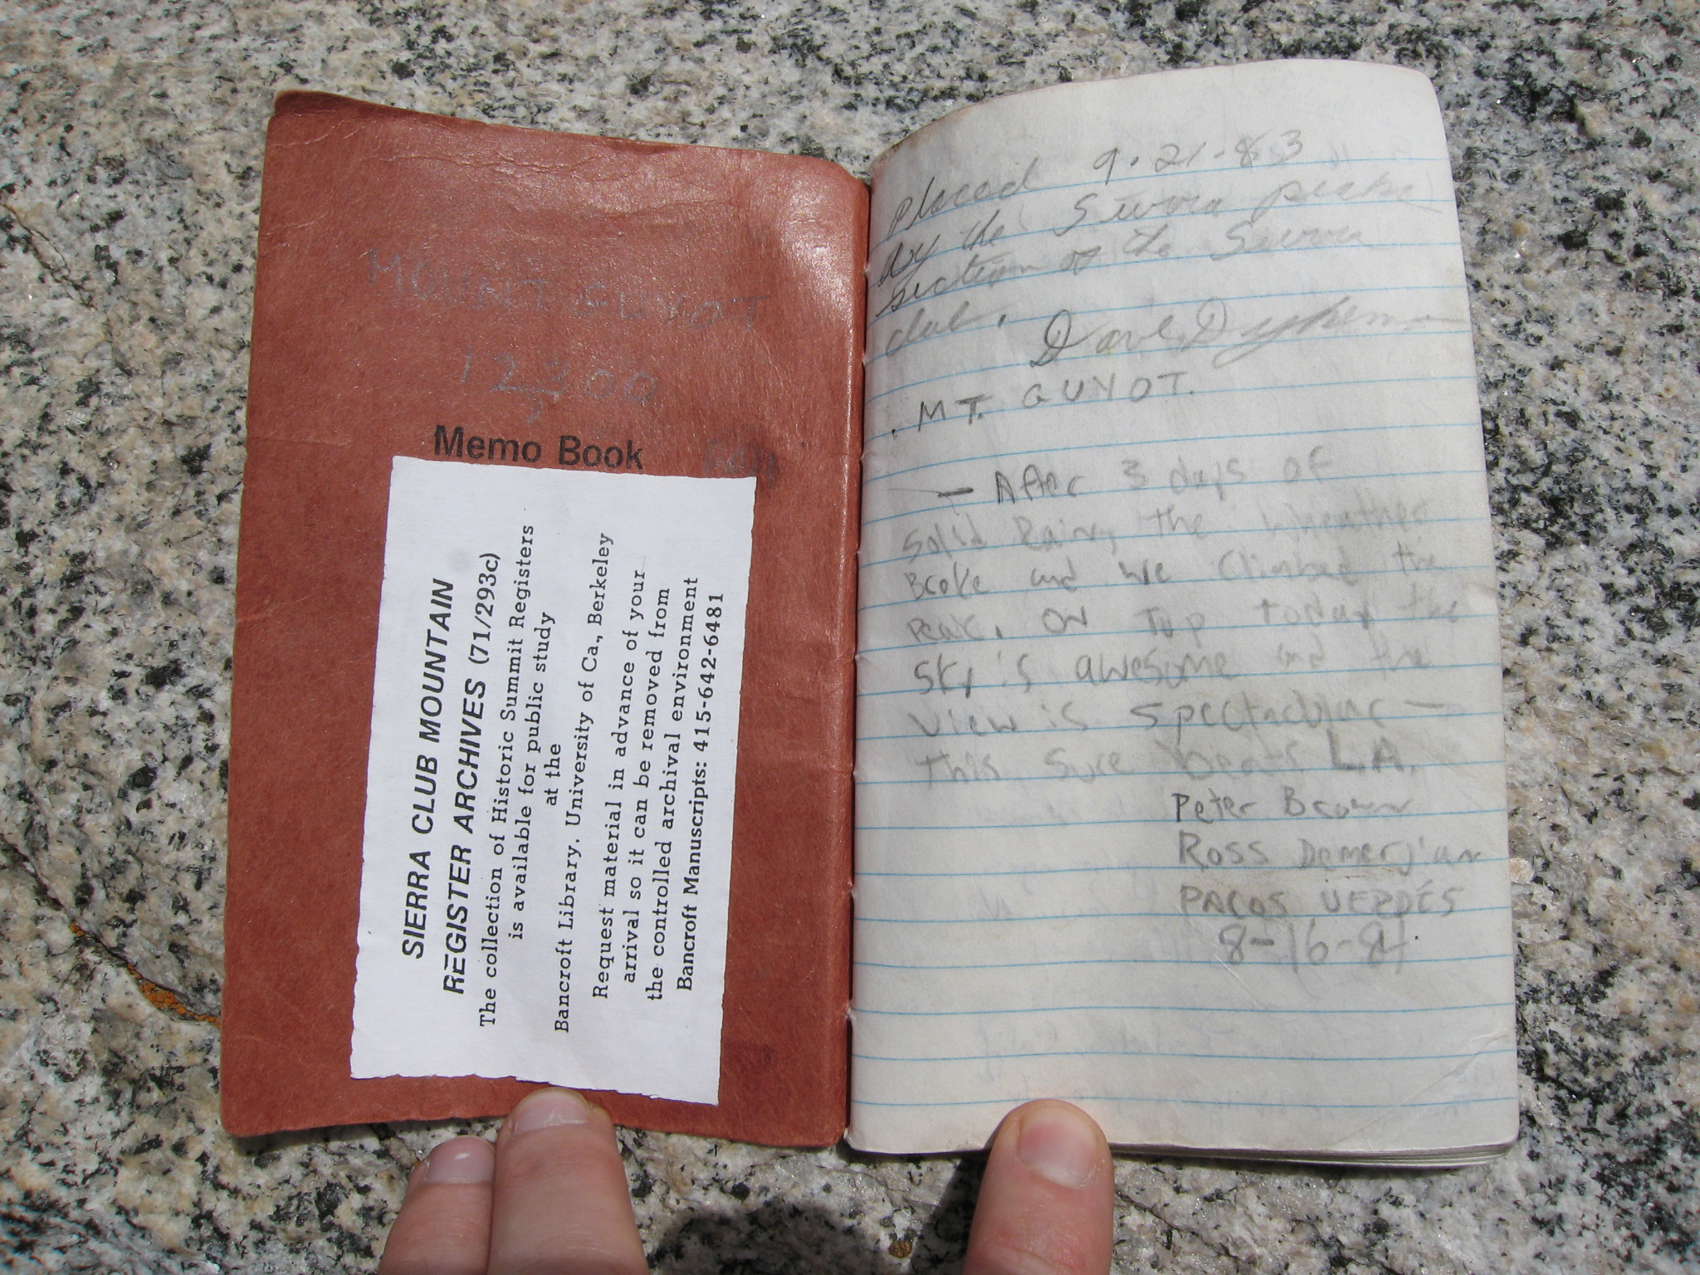 MOUNT GUYOT
12,300
Memo Book
SIERRA CLUB MOUNTAIN
REGISTER ARCHIVES (71/293c)
The collection of Historic Summit Registers
is available for public study
at the
Bancroft Library, University of Ca., Berkeley
Request material in advance of your
arrival so it can be removed from
the controlled archival environment
Bancroft Manuscripts: 415-642-6481
Placed 9.21-83
by the Sierra peaks
section of the Sierra
club.
Dave Dykeman
. MT. GUYOT.
— After 3 days of
solid Rain, the wheather
Broke and we climbed the
peak. on top today the
sky is awesome and the
view is spectacular —
this sure beats L.A.
Peter Brown
Ross Demerjian
PALOS VERDES
8-16-84